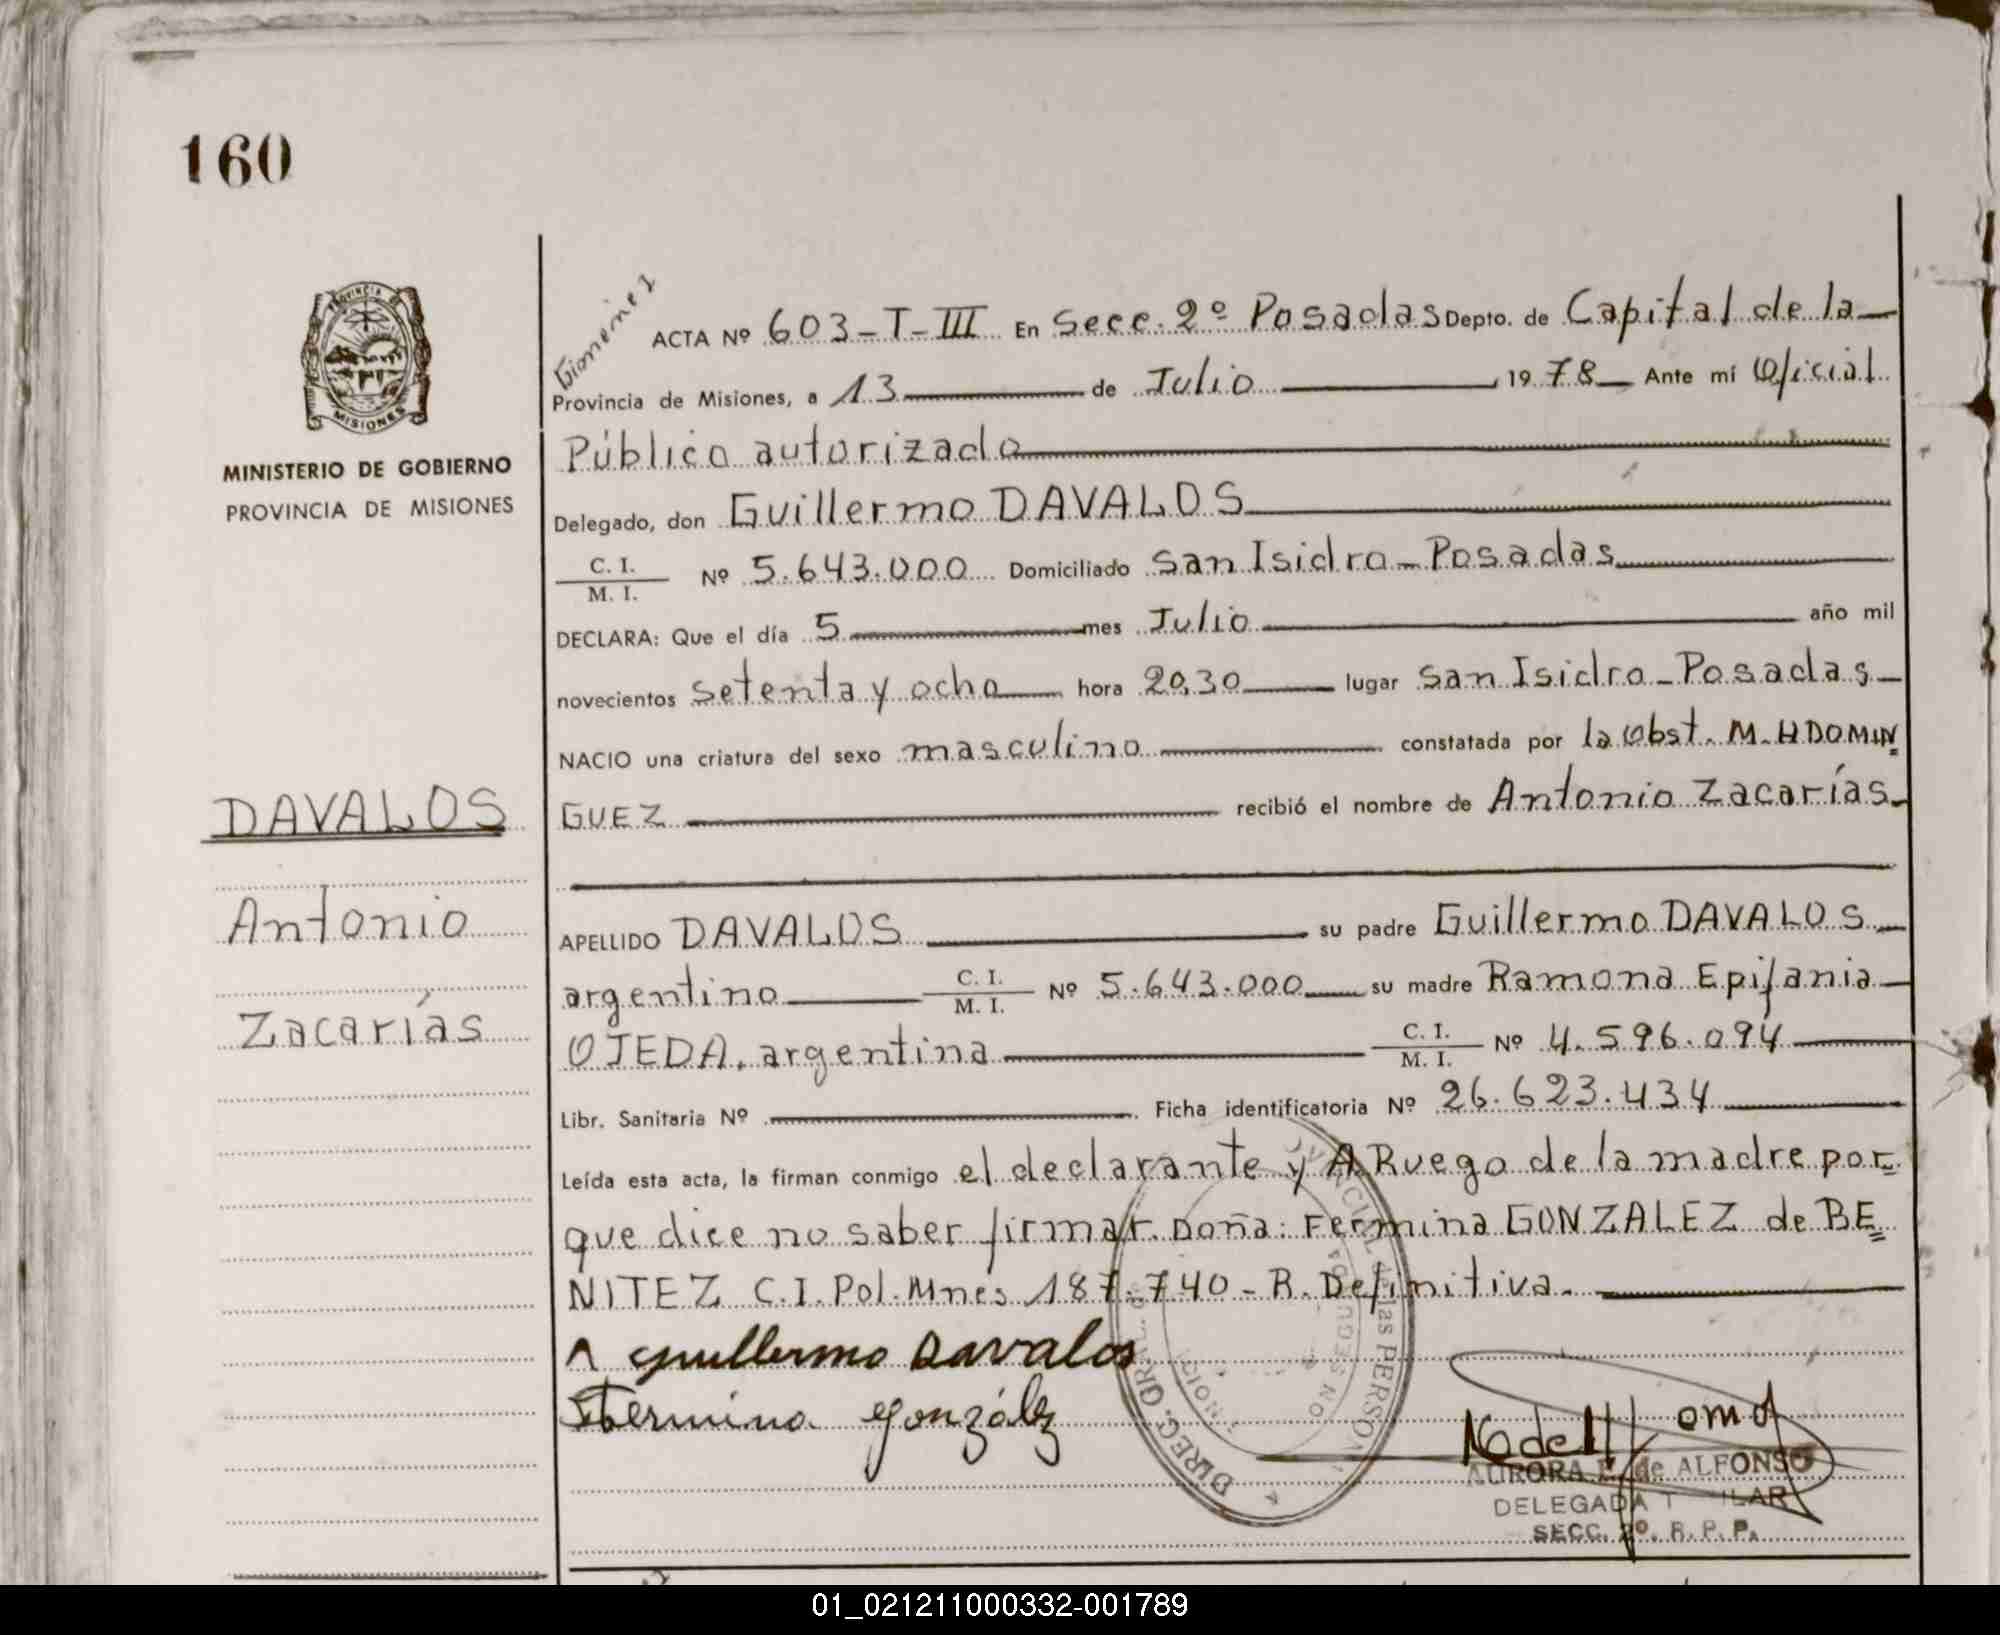 160
PROVINCIA DE
MISIONES
MINISTERIO DE GOBIERNO
PROVINCIA DE MISIONES
DAVALOS
Antonio
Zacarías
Gimenez
ACTA Nº 603-T-III En Secc. 2º Posadas Depto. de Capital de la
Provincia de Misiones, a 13 de Julio 1978 Ante mí Oficial
Público autorizado
Delegado, don Guillermo DAVALOS
C. I.
M. I. Nº 5.643.000 Domiciliado San Isidro - Posadas
DECLARA: Que el día 5 mes Julio año mil
novecientos setenta y ocho hora 20,30 lugar San Isidro - Posadas
NACIO una criatura del sexo masculino constatada por la Obst. M. H DOMIN
GUEZ recibió el nombre de Antonio Zacarías
APELLIDO DAVALOS su padre Guillermo DAVALOS
argentino C. I. M. I. Nº 5.643.000 su madre Ramona Epifania
OJEDA, argentina C. I. M. I. Nº 4.596.094
Libr. Sanitaria Nº Ficha identificatoria Nº 26.623.434
Leída esta acta, la firman conmigo el declarante y A Ruego de la madre por
que dice no saber firmar. Doña: Fermina GONZALEZ de BE
NITEZ C.I. Pol. Mnes 187.740 - R. Definitiva.
Guillermo Davalos
Fermina González
DIREC. GRAL.
de las PERSONAS
AURORA de ALFONSO
DELEGADA
SECC. 2º. R. P. P.
01_021211000332-001789